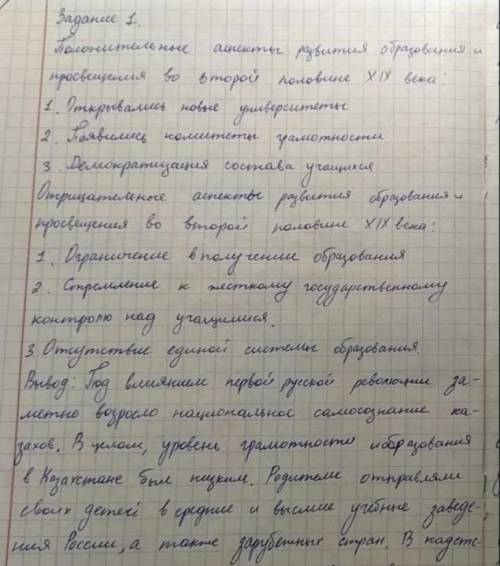 Задание 1.
Положительные аспекты развития образования и
просвещения во второй половине XIX века:
1. Открывались новые университеты
2. Появились комитеты грамотности
3. Демократизация состава учащихся
Отрицательные аспекты развития образования и
просвещения во второй половине XIX века:
1. Ограничение в получении образования
2. Стремление к жесткому государственному
контролю над учащимися.
3. Отсутствие единой системы образования.
Вывод: Под влиянием первой русской революции за-
метно возросло национальное самосознание ка-
захов. В целом, уровень грамотности и образования
в Казахстане был низким. Родители отправляли
своих детей в средние и высшие учебные заведе-
ния России, а также зарубежных стран. В